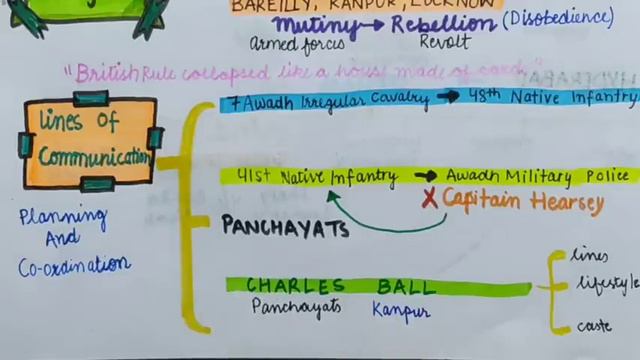 BAREILLY, KANPUR, LUCKNOW
Mutiny → Rebellion (Disobedience)
Armed forces Revolt
"British Rule collapsed like a house made of cards"
Lines Of
Communication
Planning
And
Co-ordination
7 Awadh Irregular Cavalry → 48th Native Infantry
41st Native Infantry → Awadh Military Police
X Capitain Hearsey
PANCHAYATS
CHARLES BALL
Panchayats Kanpur
lines
lifestyle
caste